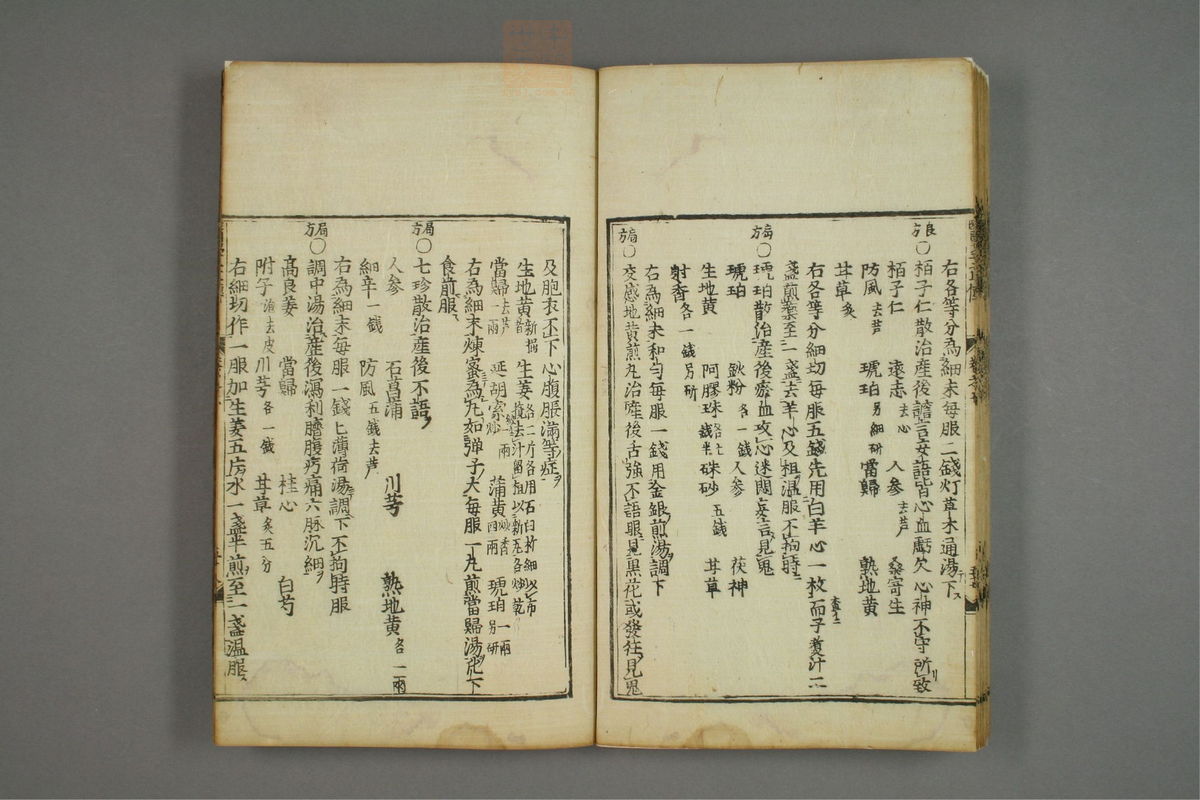 右各等分為細末每服二錢灯草木通湯下
良方
○栢子仁散治産後譫言妄語皆心血虧欠心神不守所致
栢子仁 遠志去心 人参去芦 桑寄生
防風去芦 琥珀另細研 當歸 熟地黄
甘草炙
右各等分細切每服五錢先用白羊心一枚而子煑汁二
盞煎藥至一盞去羊心及柤温服不拘時
局方
○琥珀散治産後瘀血攻心迷悶妄言見鬼
琥珀 鈥粉各一錢 人参 茯神
生地黄 阿膠珠各七錢半 硃砂五錢 甘草
射香各一錢另研
右為細末和勻每服一錢用金銀煎湯調下
局方
○交感地黄煎丸治産後舌強不語眼見黒花或發狂見鬼
及胞衣不下心腹脹滿等症
生地黄新搗 生姜各二斤各用石臼杵細
當歸去芦一兩 延胡索炒一兩 蒲黄炒香四兩 琥珀一兩另研
右為細末煉蜜為丸如弹子大每服一丸煎當歸湯化下
食前服
局方
○七珍散治産後不語
人参 石菖蒲 川芎 熟地黄各一兩
細辛一錢 防風五錢去芦
右為細末每服一錢匕薄荷湯調下不拘時服
局方
○調中湯治産後瀉利臍腹疞痛六脉沉細
高良姜 當歸 桂心 白芍
附子炮去皮 川芎各一錢 甘草炙五分
右細切作一服加生姜五片水一盞半煎至一盞温服